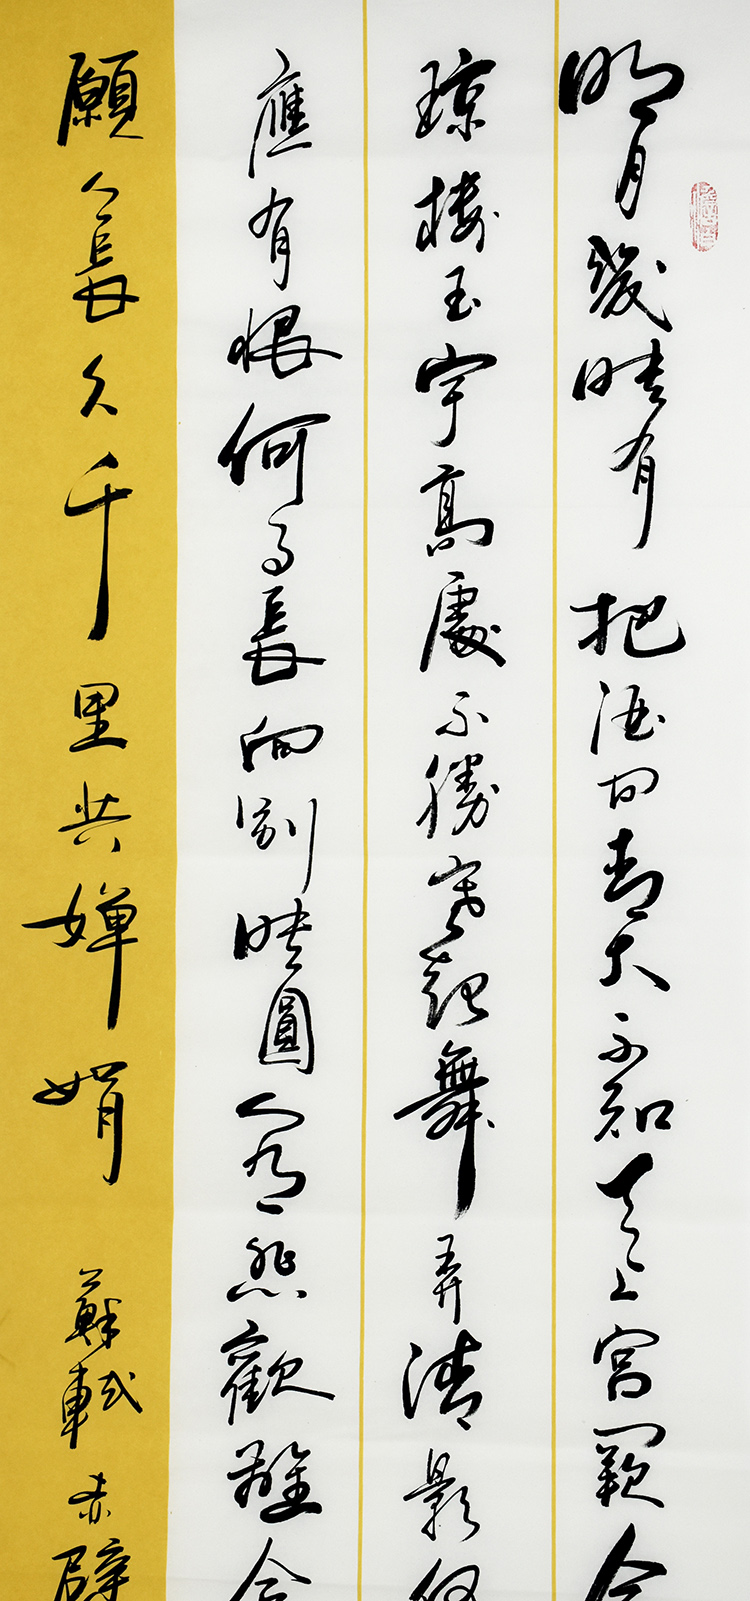 明月幾時有把酒問青天不知天上宮闕今
琼樓玉宇高處不勝寒起舞弄清影何
應有恨何事長向別時圓人有悲歡離合
願人長久千里共嬋娟 蘇軾 赤壁